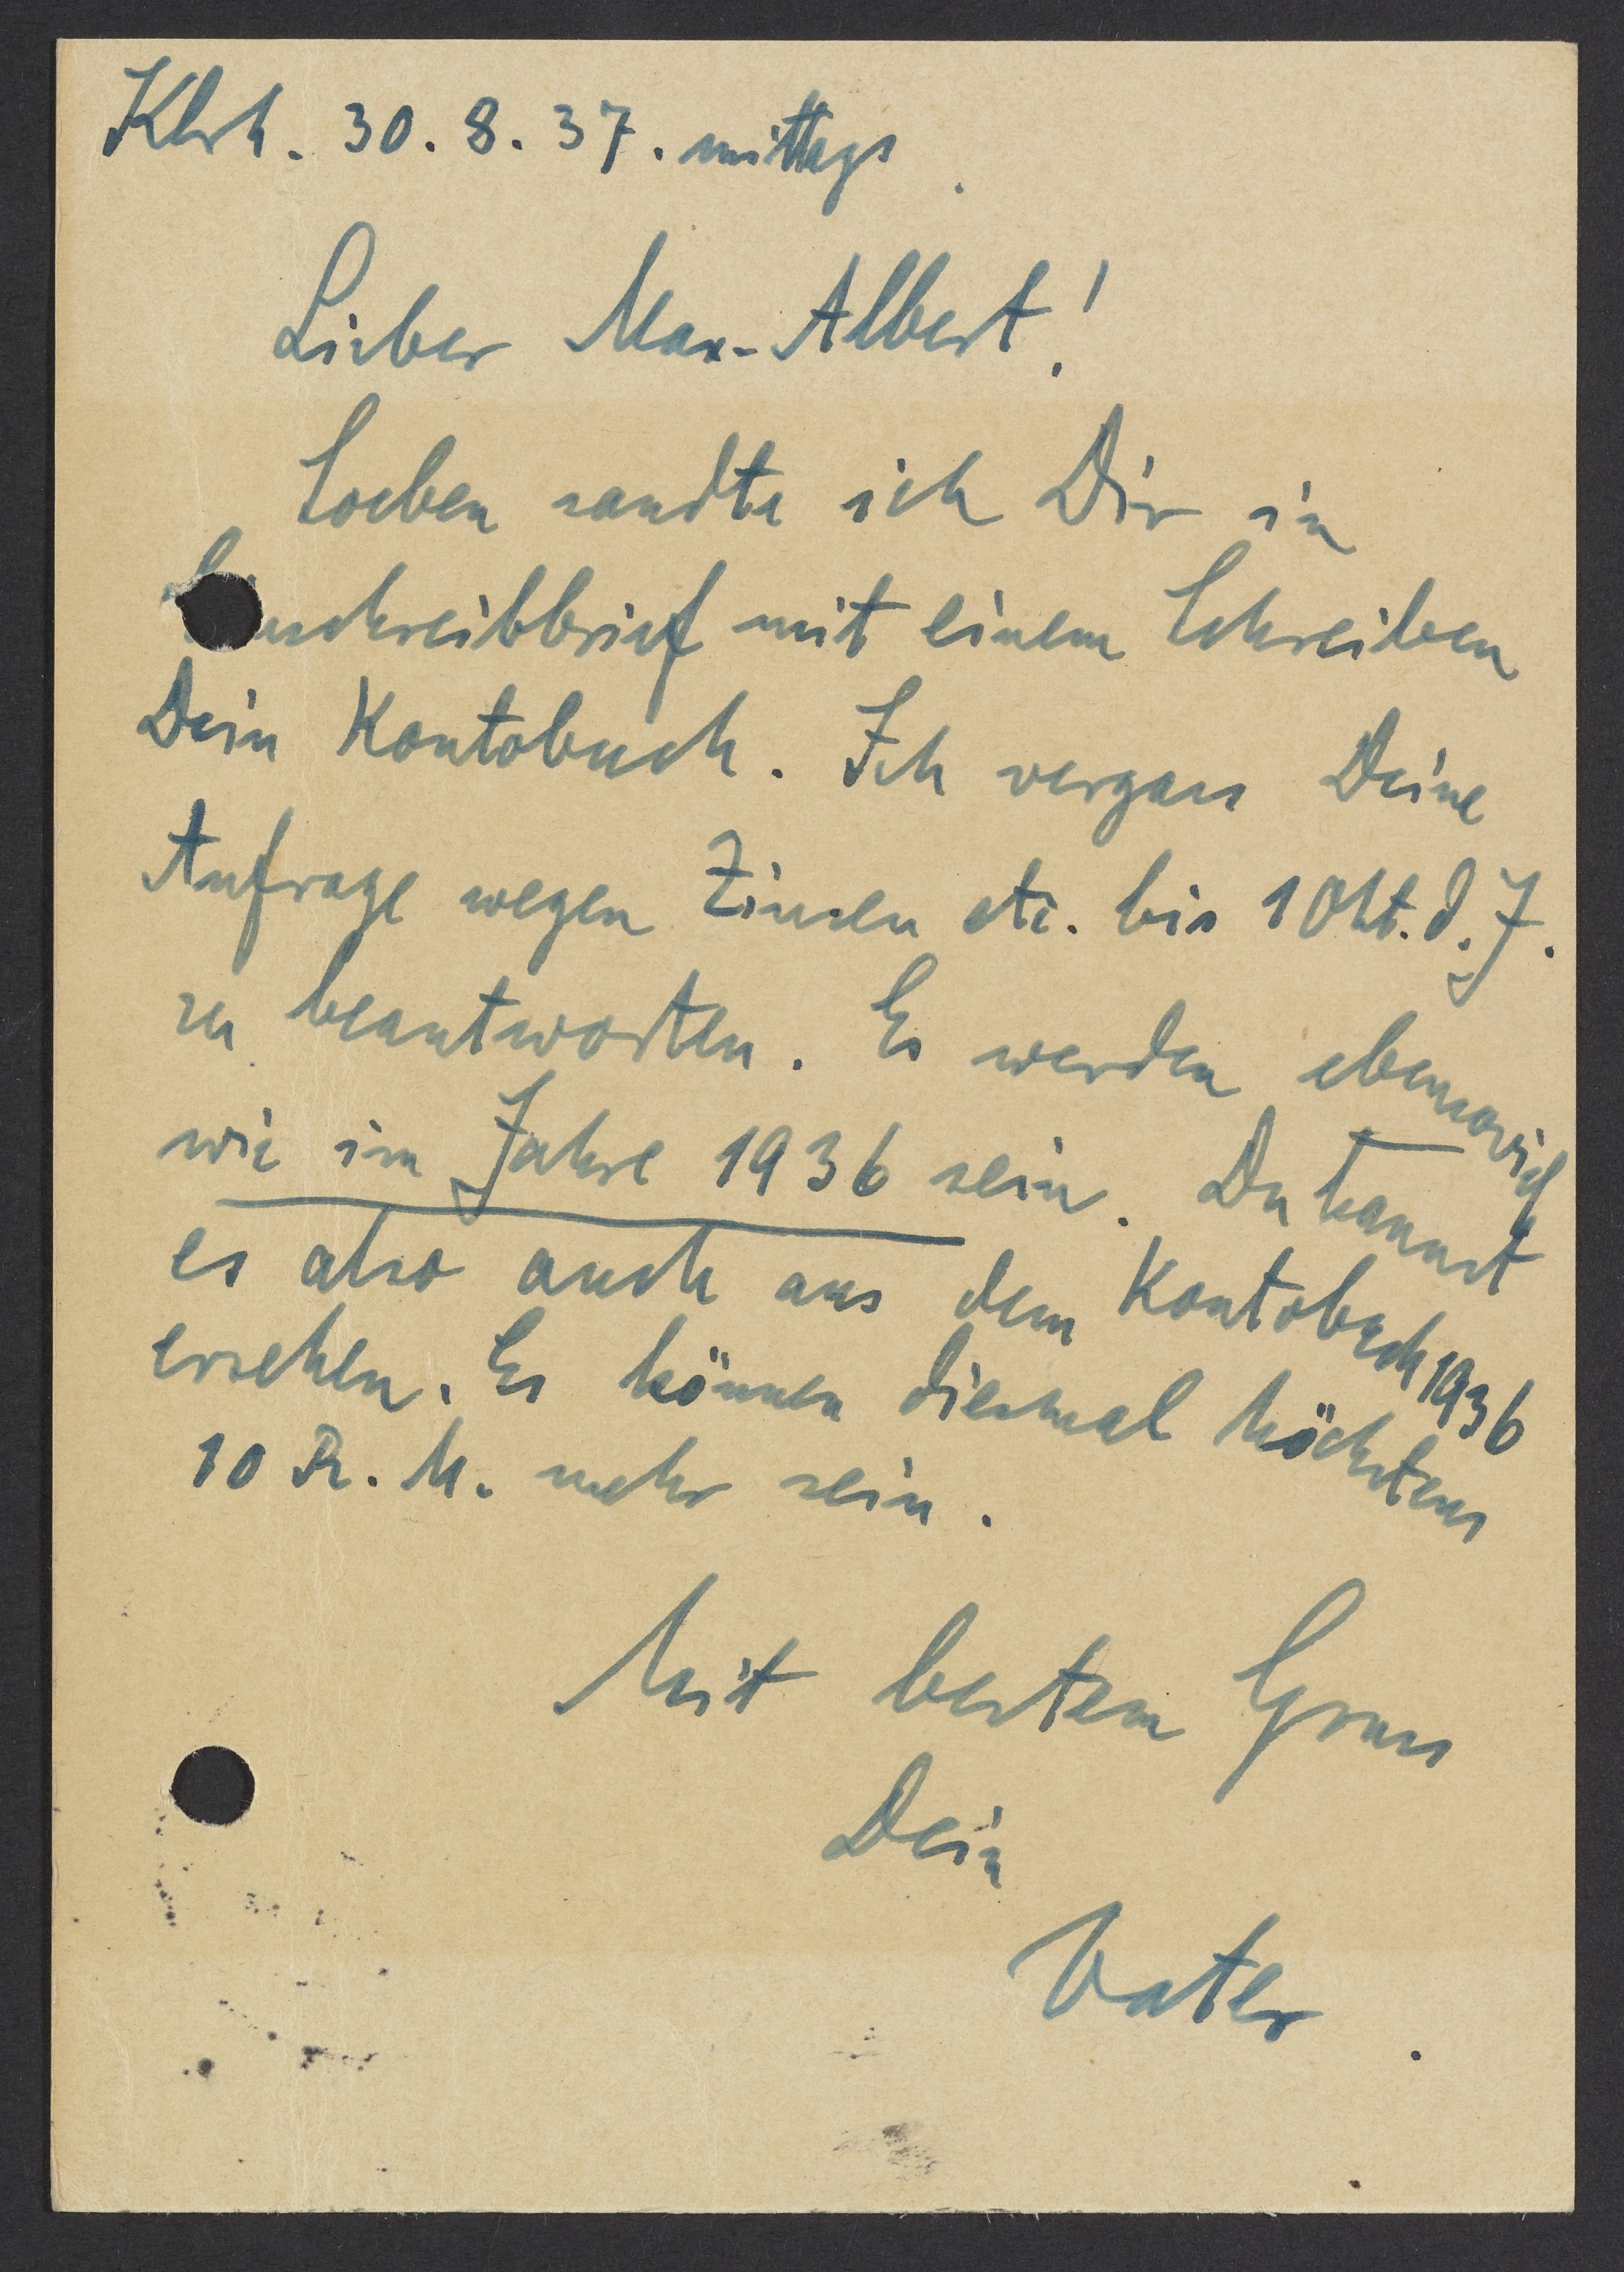 Klrh. 30. 8. 37. mittags.
Lieber Max-Albert!
Soeben sandte ich Dir in
Einschreibbrief mit einem Schreiben
Dein Kontobuch. Ich vergass Deine
Anfrage wegen Zinsen etc. bis 1 Okt. d. J.
zu beantworten. Es werden ebensoviel
wie im Jahre 1936 sein. Du kannst
es also auch aus dem Kontobuch 1936
ersehen. Es können diesmal höchstens
10 R. M. mehr sein.
Mit bestem Gruss
Dein
Vater.